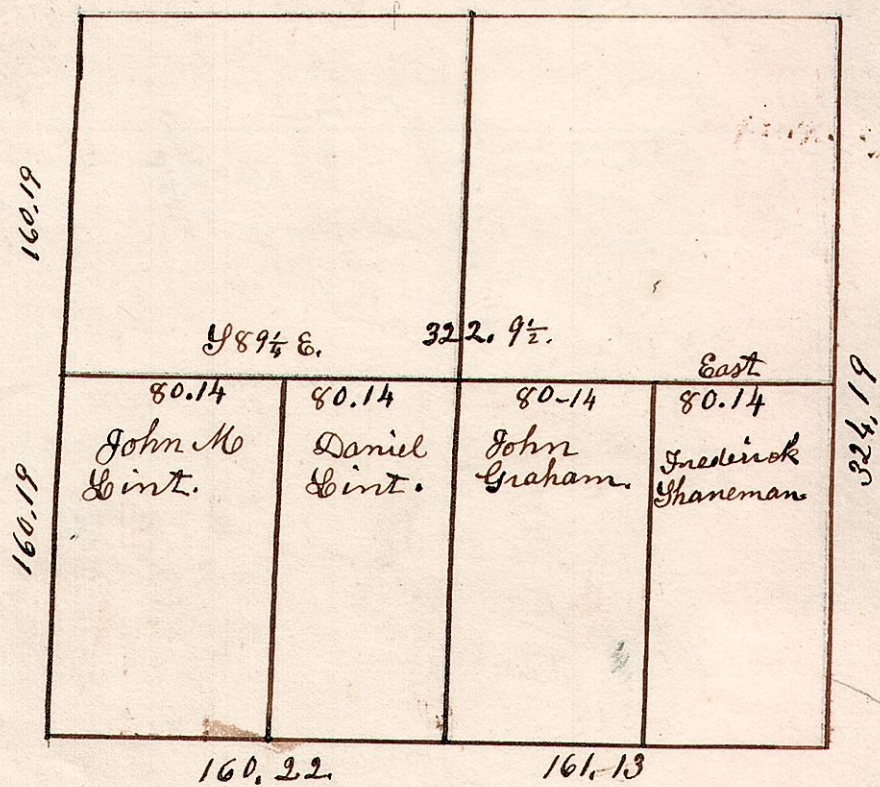 160.19
S 89¼ E. 322. 9½.
East
80.14 80.14 80-14 80.14
John M
Lint.
Daniel
Lint.
John
Graham.
Frederick
Shaneman.
160.19
324.19
160.22. 161-13